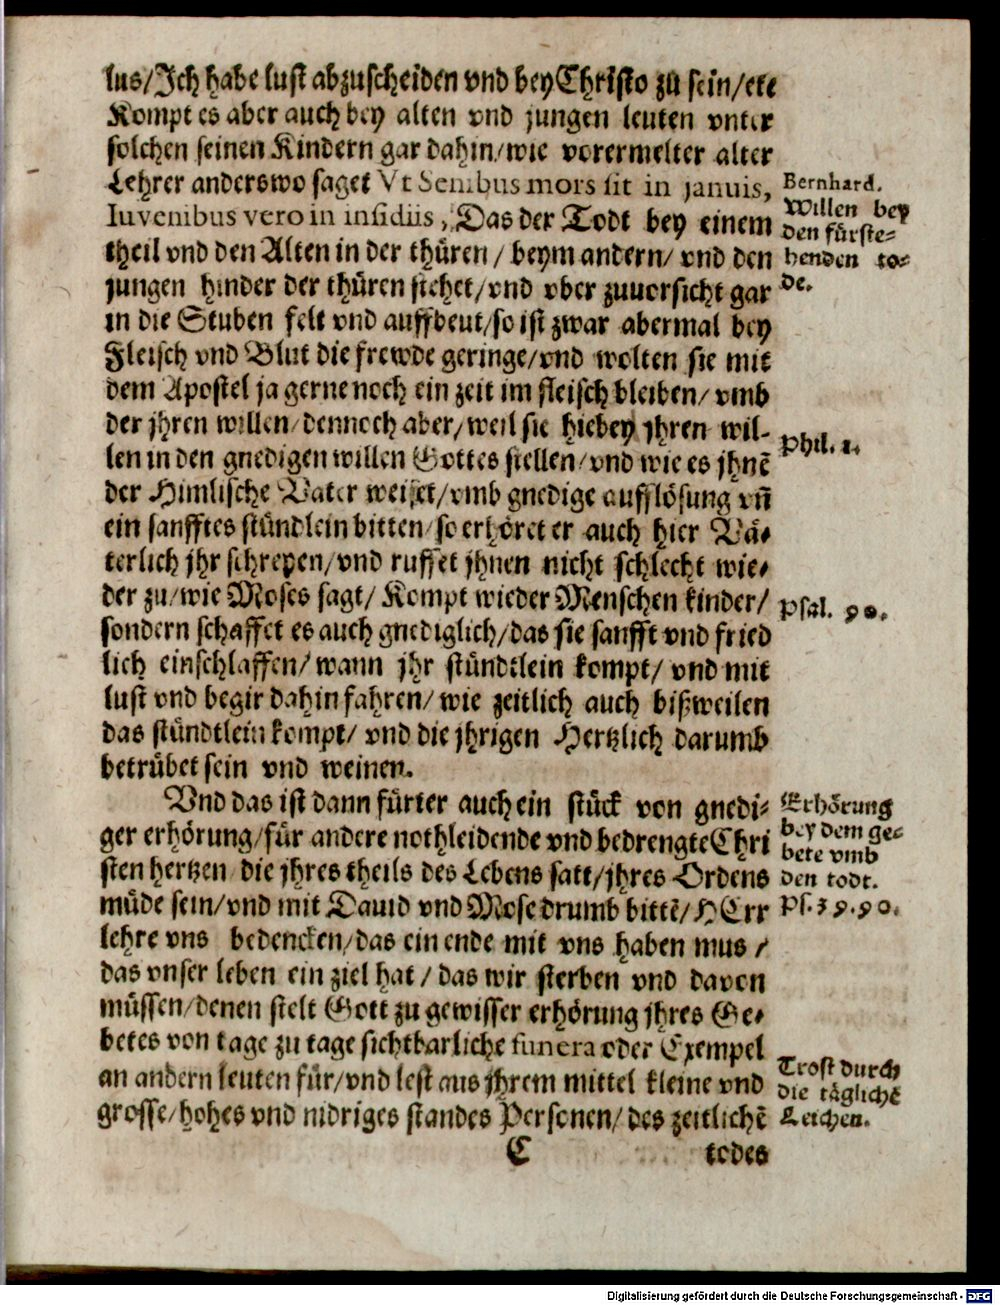 lus/Ich habe lust abzuscheiden vnd bey Christo zu sein/etc
Kompt es aber auch bey alten vnd jungen leuten vnter
solchen seinen Kindern gar dahin/wie vorermelter alter
Lehrer anderswo saget Vt Senibus mors sit in januis,
Iuvenibus vero in insidiis, Das der Todt bey einem
theil vnd den Alten in der thüren / beym andern/ vnd den
jungen hinder der thüren stehet/vnd vber zuuorsicht gar
in die Stuben felt vnd auffbeut/so ist zwar abermal bey
Fleisch vnd Blut die frewde geringe/vnd wolten sie mit
dem Apostel ja gerne noch ein zeit im fleisch bleiben/ vmb
der jhren willen/dennoch aber/weil sie hiebey jhren wil-
len in den gnedigen willen Gottes stellen/vnd wie es jhnē
der Himlische Vater weiset/vmb gnedige aufflösung vn̄
ein sanfftes stündlein bitten/so erhöret er auch hier Vä-
terlich jhr schreyen/vnd ruffet jhnen nicht schlecht wie-
der zu/wie Moses sagt/ Kompt wieder Menschen kinder/
sondern schaffet es auch gnediglich/das sie sanfft vnd fried
lich einschlaffen/ wann jhr stündtlein kompt/ vnd mit
lust vnd begir dahin fahren/ wie zeitlich auch bißweilen
das stündtlein kompt/ vnd die jhrigen Hertzlich darumb
betrübet sein vnd weinen.
Vnd das ist dann fürter auch ein stück von gnedi-
ger erhörung/für andere nothleidende vnd bedrengte Chri
sten hertzen die jhres theils des Lebens satt/jhres Ordens
müde sein/vnd mit Dauid vnd Mose drumb bittē/HErr
lehre vns bedencken/das ein ende mit vns haben mus /
das vnser leben ein ziel hat / das wir sterben vnd davon
müssen/denen stelt Gott zu gewisser erhörung jhres Ge-
betes von tage zu tage sichtbarliche funera oder Exempel
an andern leuten für/vnd lest aus jhrem mittel kleine vnd
grosse/hohes vnd nidriges standes Personen/ des zeitlichē
C todes
Bernhard.
Willen bey
den fürste-
henden to-
de.
Phil. 1.
Psal. 90.
Erhörung
bey dem ge-
bete vmb
den todt.
Ps. 39. 90.
Trost durch
die täglichē
Leichen.
Digitalisierung gefördert durch die Deutsche Forschungsgemeinschaft - DFG